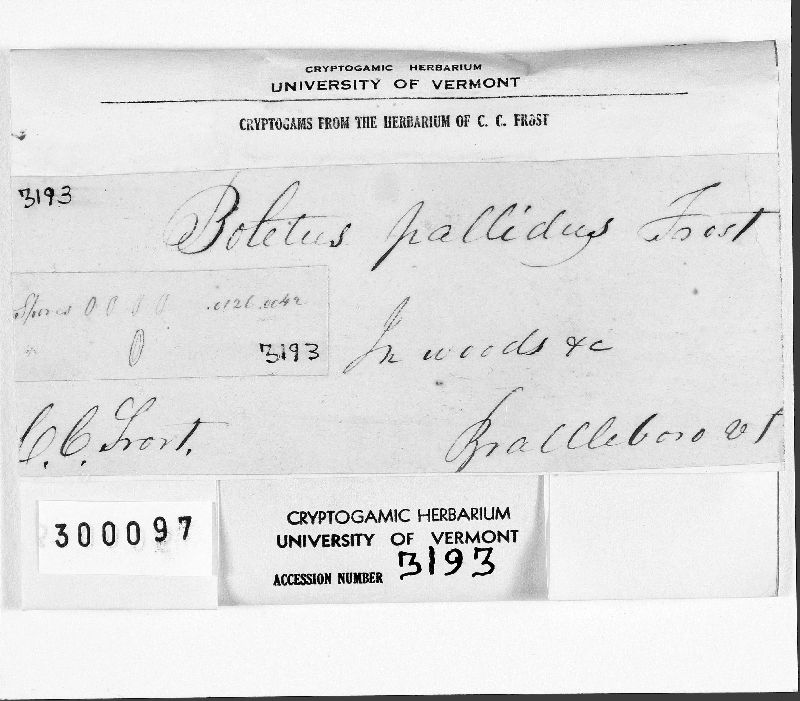 CRYPTOGAMIC HERBARIUM
UNIVERSITY OF VERMONT
CRYPTOGAMS FROM THE HERBARIUM OF C. C. FROST
3193
Boletus pallidus Frost
Spores 0 0 0 0 .0126 .0042
0
3193
In woods &c
C. C. Frost.
Brattleboro Vt
300097
CRYPTOGAMIC HERBARIUM
UNIVERSITY OF VERMONT
ACCESSION NUMBER 3193